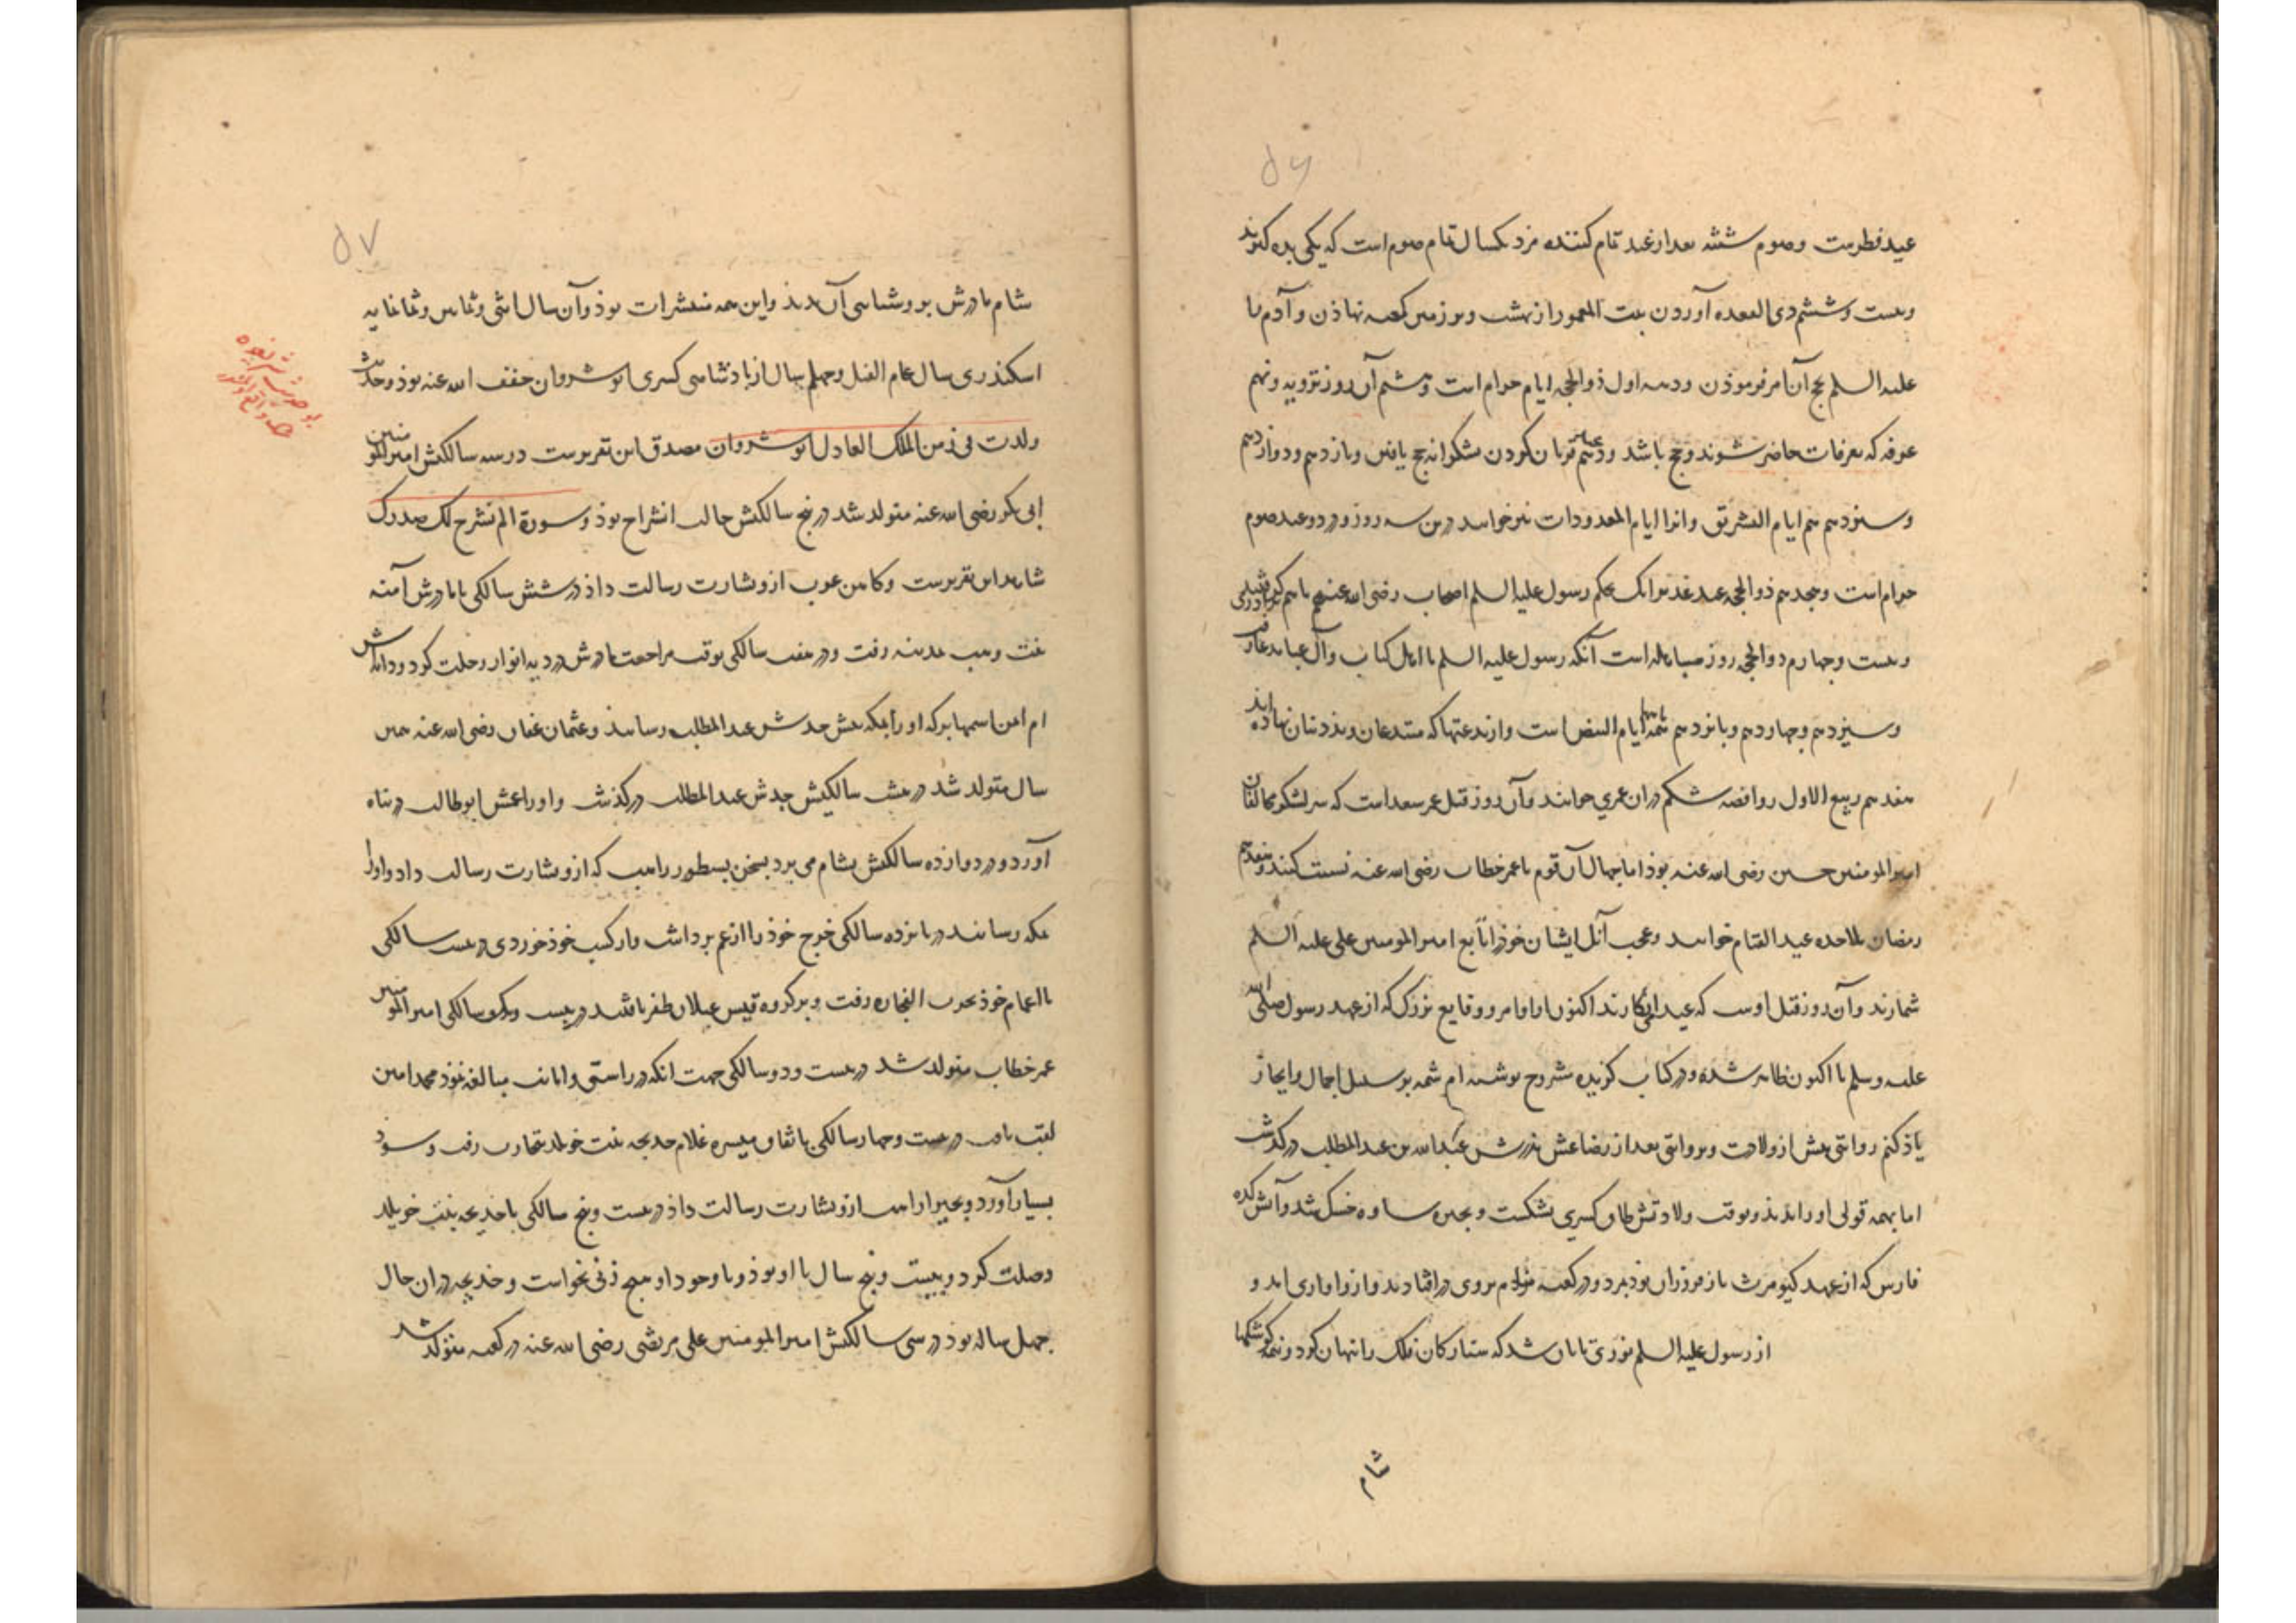 ۵۶
عید فطرست و صوم ششه بعد از عید تمام کننده مزد یکسال تمام صوم است که یکی بده گیرند
و بیست و ششم ذی القعده آوردن بیت المعمور از بهشت و بر زمین کعبه نهاذن و آدم را
علیه السلم بحج آن امر فرموذن و دهه اول ذوالحجه ایام حرام است و هشتم آن روز ترویه و نهم
عرفه که بعرفات حاضر شوند و حج باشد و دهم عید قربان کردن شکرانه حج یافتن و یازدهم و دوازدهم
و سیزدهم هم ایام التشریق و انرا ایام المعدودات نیز خوانند درین سه روز و در دو عید صوم
حرام است و هجدهم ذوالحجه عید غدیر انک بحکم رسول علیه السلم اصحاب رضی الله عنهم با هم برادری
و بیست و چهارم ذوالحجه روز مباهله است آنکه رسول علیه السلم با اهل کتاب و آل عبا
و سیزدهم و چهاردهم و پانزدهم همه ماهها ایام البیض است و از بدعتها که مبتدعان و بذدینان نهاده اند
هفدهم ربیع الاول روافضه شکم دران عمری خوانند و آن روز قتل عمر سعد است که سر لشکر مخالفان
امیرالمومنین حسین رضی الله عنه بوذ اما جهال آن قوم با عمر خطاب رضی الله عنه نسبت کنند و هفدهم
رمضان ملاحده عید القیام خوانند و عجب آنک ایشان خوذ را تابع امیر المومنین علی علیه السلم
شمارند و آن روز قتل اوست که عید انگارند اکنون اوامر و وقایع بزرگ که از عهد رسول صلی الله
علیه و سلم تا اکنون ظاهر شده و در کتاب گزیده مشروح نوشته ام شمه بر سبیل اجمال و ایجاز
یاذ کنم روایتی پیش از ولادت و بروایتی بعد از رضاعش پذرش عبدالله بن عبدالمطلب درگذشت
اما بهمه قولی او را ندیذ و بوقت ولادتش طاق کسری بشکست و بحیره ساوه خشک شد و آتش کده
فارس که از عهد کیومرث باز فروزان بوذ بمرد و در کعبه بروی درافتادند و ازو اواری امد و
از رسول علیه السلم نوری تابان شد که ستارگان فلک را نهان کرد و کوشکها
شام
۵۷
شام مادرش برو شناسی آن بدیذ و این همه مبشرات بوذ و آن سال اثنی و ثمانین و ثمانمایه
اسکندری سال عام الفیل و چهلم سال از پادشاهی کسری انوشروان خفف الله عنه بوذ و حدیث
ولدت فی زمن الملک العادل انوشروان مصدق این تقریرست در سه سالگیش امیرالمومنین
ابی بکر رضی الله عنه متولد شد در پنج سالگیش حالت انشراح بوذ و سورة الم نشرح لک صدرک
شاهد این تقریرست و کاهن عرب ازو بشارت رسالت داذ در شش سالگی با مادرش آمنه
بنت وهب بمدینه رفت و در هفت سالگی بوقت مراجعت مادرش در دیه ابوا رحلت کرد و دایه اش
ام ایمن اسمها برکه او را بمکه پیش جدش عبدالمطلب رسانید و عثمان عفان رضی الله عنه همین
سال متولد شد در هشت سالگیش جدش عبدالمطلب درگذشت و او را عمش ابوطالب در پناه
آورد و در دوازده سالگیش بشام می برد بسخن نسطور راهب که ازو بشارت رسالت داد و او را
بمکه رسانید در پانزده سالگی خرج خوذ را از عم برداشت و از کسب خوذ خوردی در بیست سالگی
با اعمام خوذ بحرب الفجار رفت و بر گروه قیس عیلان ظفر یافتند در بیست و یک سالگی امیر المومنین
عمر خطاب متولد شد در بیست و دو سالگی جهت انکه در راستی و امانت مبالغه نموذ محمد امین
لقب یافت در بیست و چهار سالگی باتفاق میسره غلام خدیجه بنت خویلد بتجارت رفت و سوذ
بسیار آورد و بحیرا راهب ازو بشارت رسالت داذ در بیست و پنج سالگی با خدیجه بنت خویلد
وصلت کرد و بیست و پنج سال با او بوذ و با وجود او هیچ زنی نخواست و خدیجه دران حال
چهل ساله بوذ در سی سالگیش امیرالمومنین علی مرتضی رضی الله عنه در کعبه متولد شد